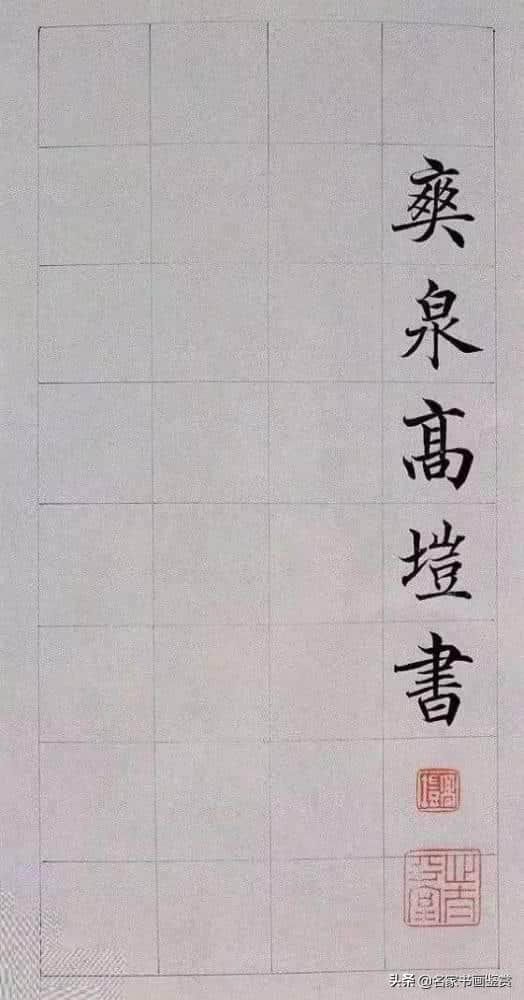 爽泉髙塏書
头条 @名家书画鉴赏